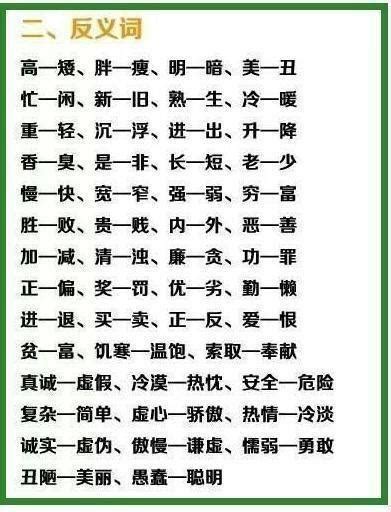 二、反义词
高—矮、胖—瘦、明—暗、美—丑
忙—闲、新—旧、熟—生、冷—暖
重—轻、沉—浮、进—出、升—降
香—臭、是—非、长—短、老—少
慢—快、宽—窄、强—弱、穷—富
胜—败、贵—贱、内—外、恶—善
加—减、清—浊、廉—贪、功—罪
正—偏、奖—罚、优—劣、勤—懒
进—退、买—卖、正—反、爱—恨
贫—富、饥寒—温饱、索取—奉献
真诚—虚假、冷漠—热忱、安全—危险
复杂—简单、虚心—骄傲、热情—冷淡
诚实—虚伪、傲慢—谦虚、懦弱—勇敢
丑陋—美丽、愚蠢—聪明